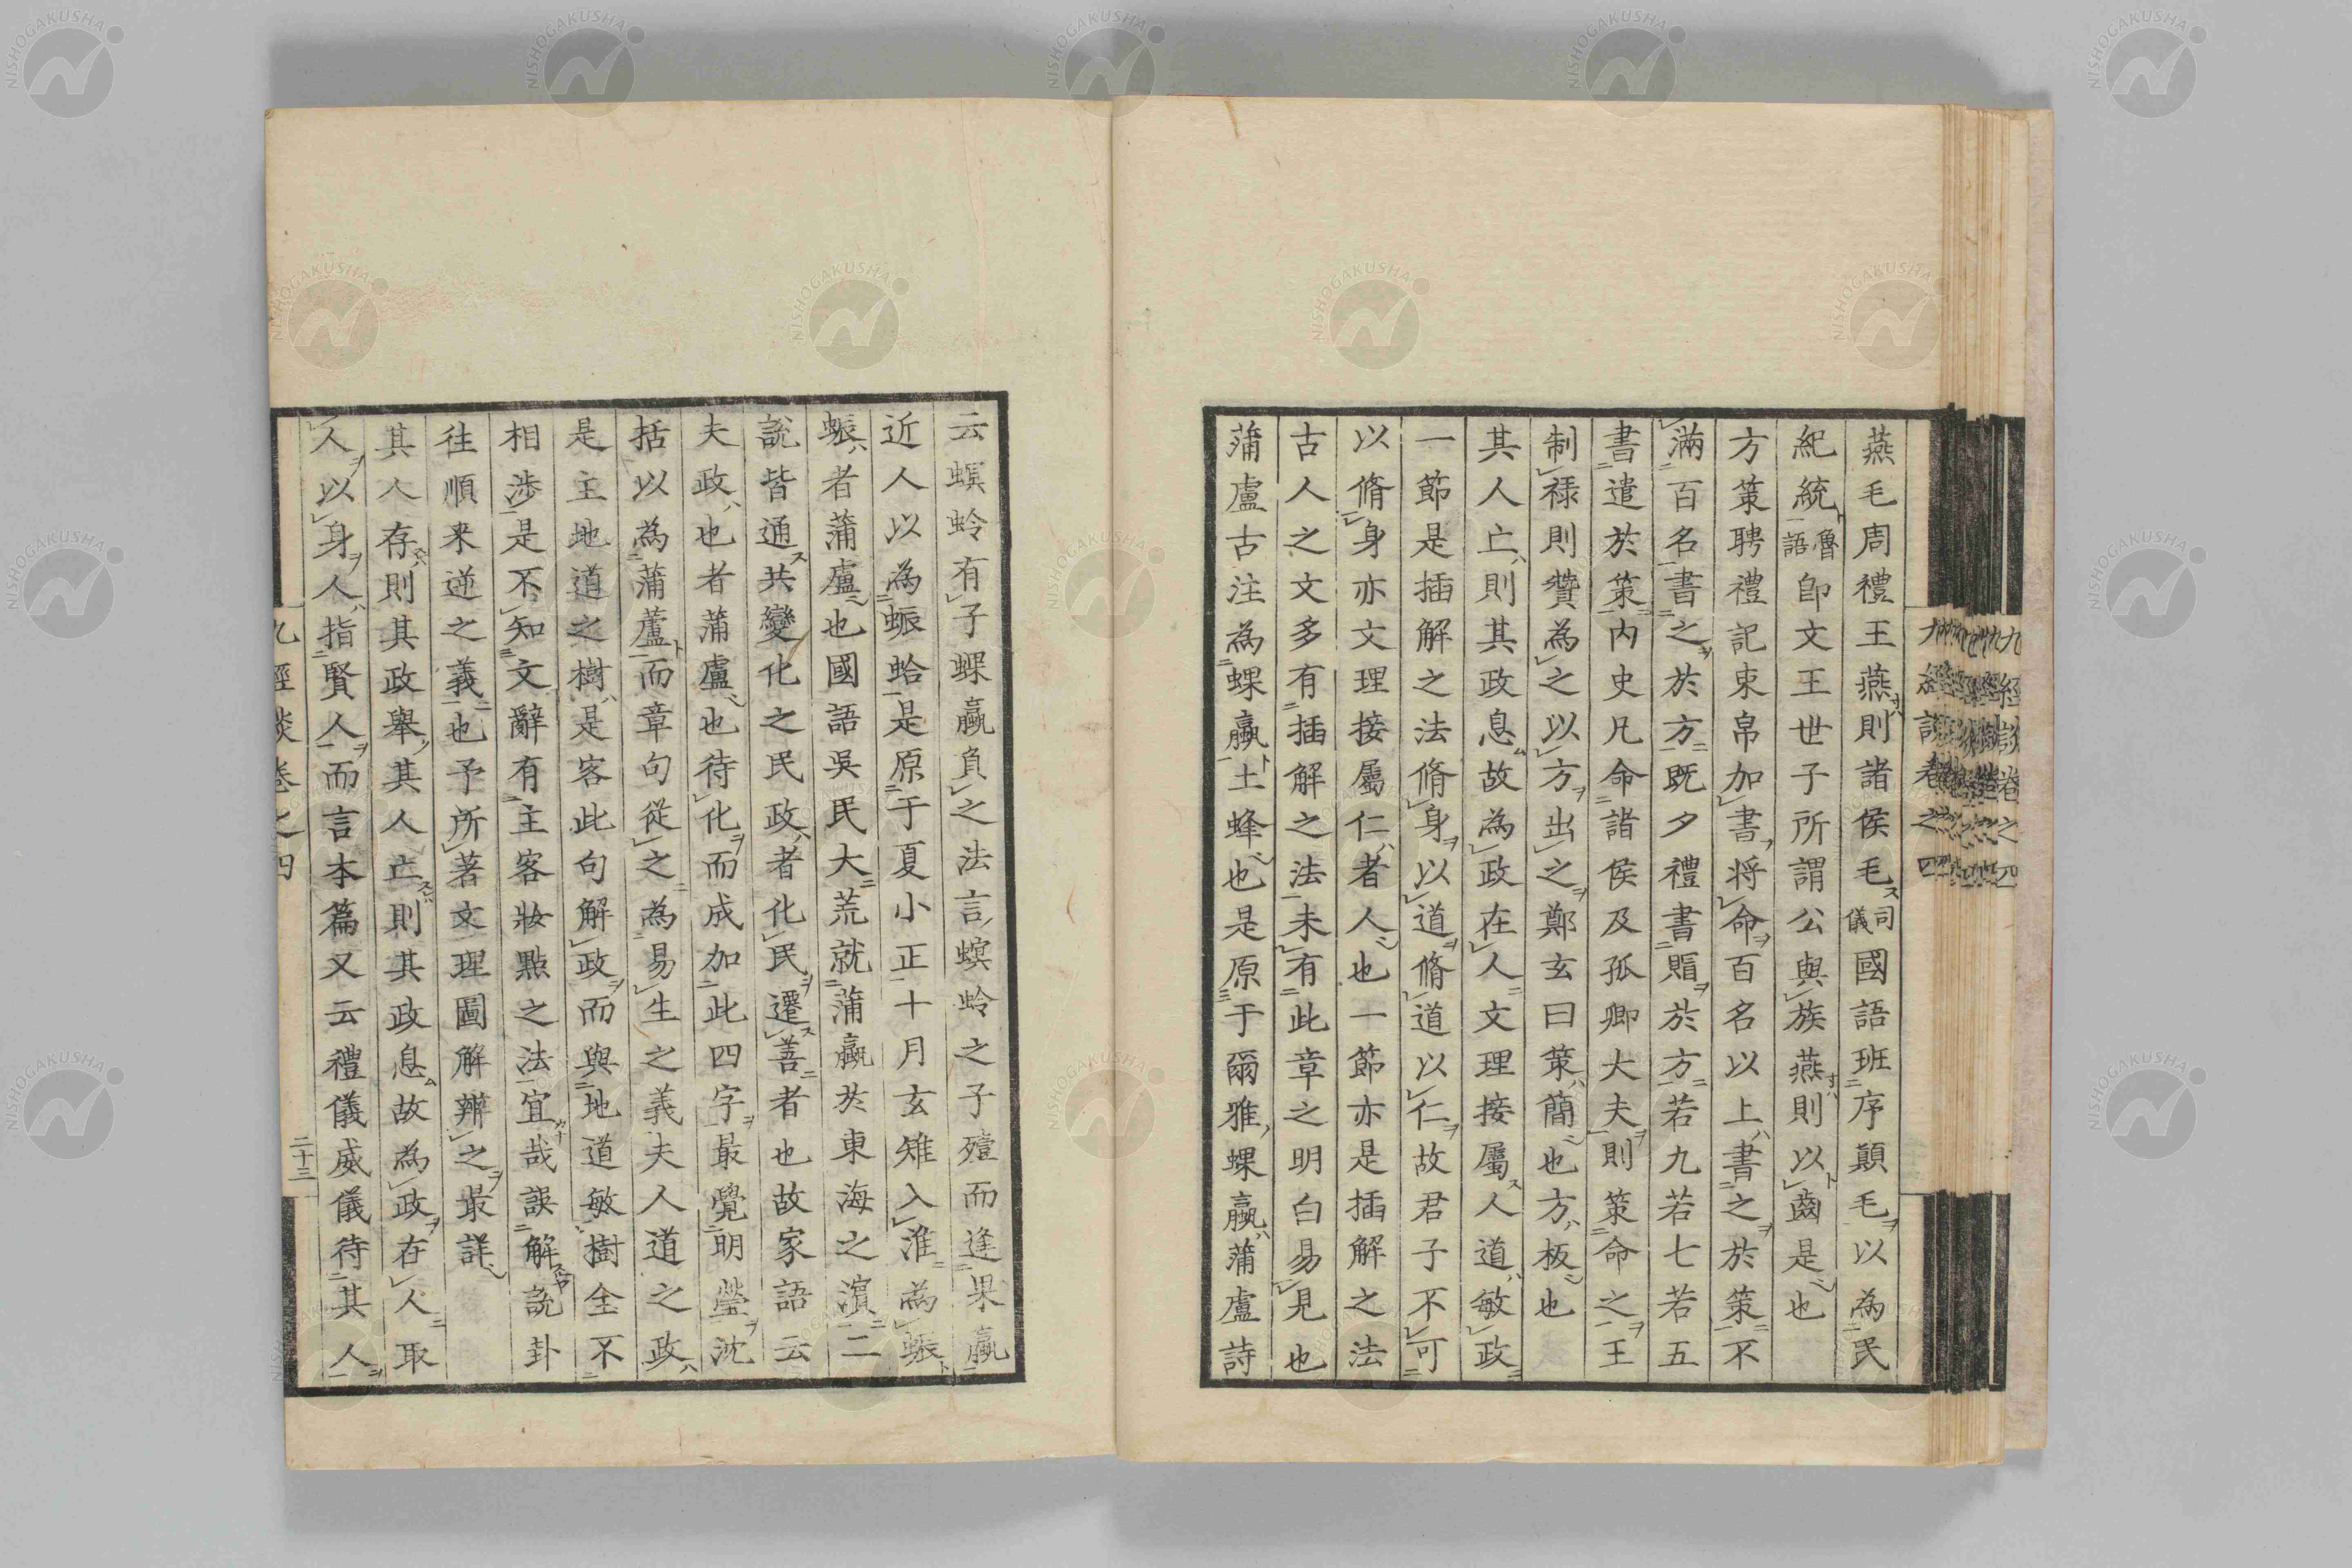 燕毛周禮王燕則諸侯毛司儀國語班序顛毛以為民
紀統魯語即文王世子所謂公與族燕則以齒是也
方策聘禮記束帛加書将命百名以上書之於策不
滿百名書之於方既夕禮書賵於方若九若七若五
書遣於策内史凡命諸侯及孤卿大夫則策命之王
制禄則贊為之以方出之鄭玄曰策簡也方板也
其人亡則其政息故為政在人文理接屬人道敏政
一節是插解之法脩身以道脩道以仁故君子不可
以脩身亦文理接屬仁者人也一節亦是插解之法
古人之文多有插解之法未有此章之明白易見也
蒲盧古注為蜾蠃土蜂也是原于爾雅蜾蠃蒲盧詩
云螟蛉有子蜾蠃負之法言螟蛉之子殪而逢果蠃
近人以為蜄蛤是原于夏小正十月玄雉入淮為蜄
蜄者蒲盧也國語吳民大荒就蒲蠃於東海之濵二
說皆通共變化之民政者化民遷善者也故家語云
夫政也者蒲盧也待化而成加此四字最覺明瑩沈
括以為蒲蘆而章句從之為易生之義夫人道之政
是主地道之樹是客此句解政而與地道敏樹全不
相渉是不知文辭有主客妝點之法宜哉誤解說卦
往順来逆之義也予所著文理圖解辨之最詳
其人存則其政舉其人亡則其政息故為政在人取
人以身人指賢人而言本篇又云禮儀威儀待其人
九經談卷之四
二十三